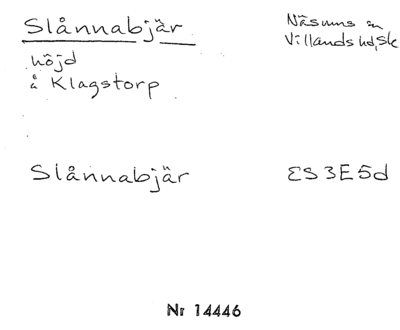 Slånnabjär
Näsums sn
Villands hd, Sk
höjd
å Klagstorp
Slånnabjär
ES 3E5d
Nr 14446